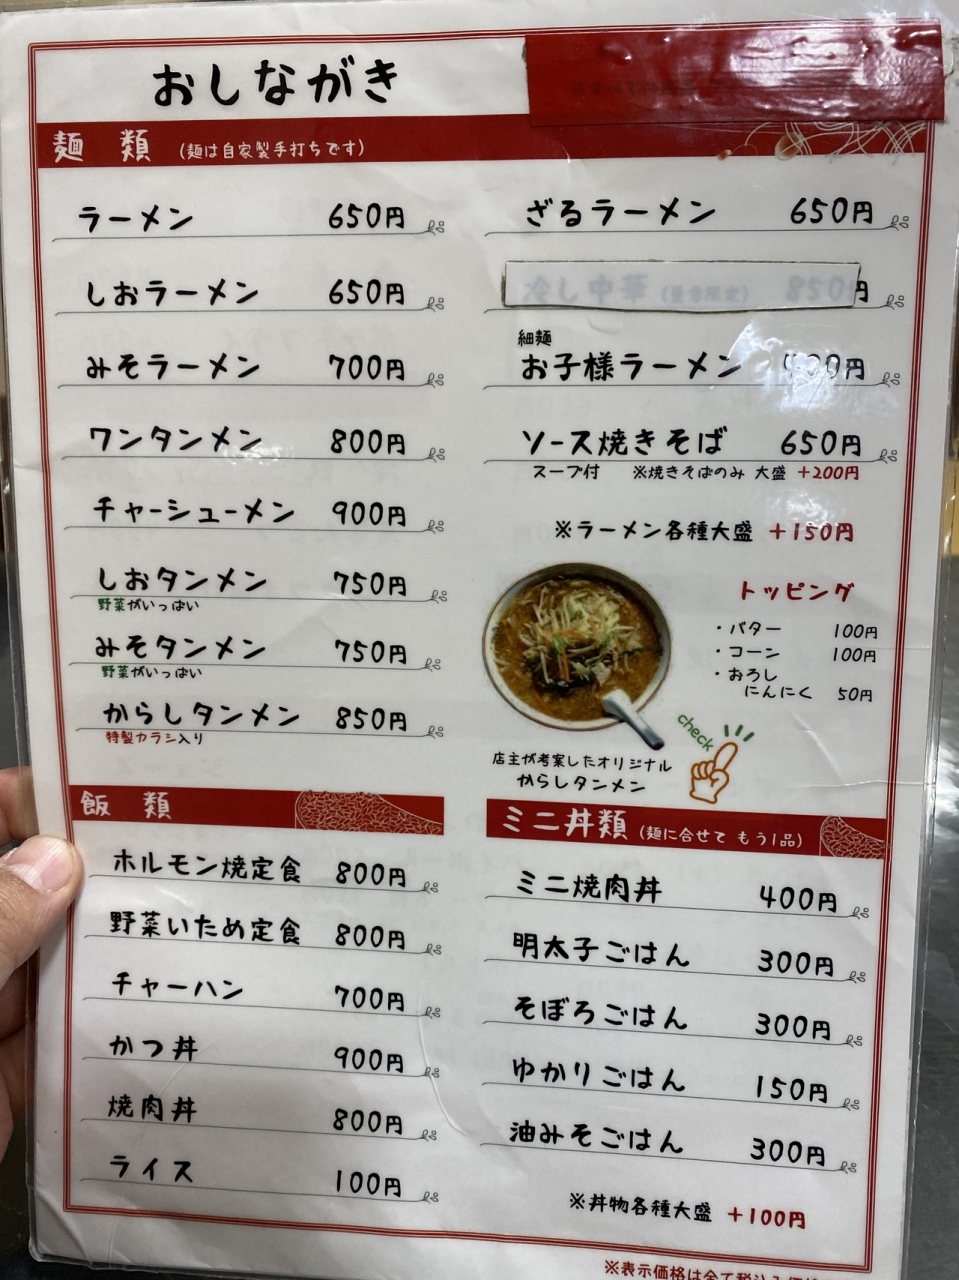 おしながき
麺類 (麺は自家製手打ちです)
ラーメン 650円
しおラーメン 650円
みそラーメン 700円
ワンタンメン 800円
チャーシューメン 900円
しおタンメン 750円
野菜がいっぱい
みそタンメン 750円
野菜がいっぱい
からしタンメン 850円
特製カラシ入り
ざるラーメン 650円
冷し中華 850円
細麺
お子様ラーメン 円
ソース焼きそば 650円
スープ付 ※焼きそばのみ 大盛 +200円
※ラーメン各種大盛 +150円
トッピング
・バター 100円
・コーン 100円
・おろし
にんにく 50円
check
店主が考案したオリジナル
からしタンメン
飯類
ホルモン焼定食 800円
野菜いため定食 800円
チャーハン 700円
かつ丼 900円
焼肉丼 800円
ライス 100円
ミニ丼類 (麺に合せて もう1品)
ミニ焼肉丼 400円
明太子ごはん 300円
そぼろごはん 300円
ゆかりごはん 150円
油みそごはん 300円
※丼物各種大盛 +100円
※表示価格は全て税込み価格